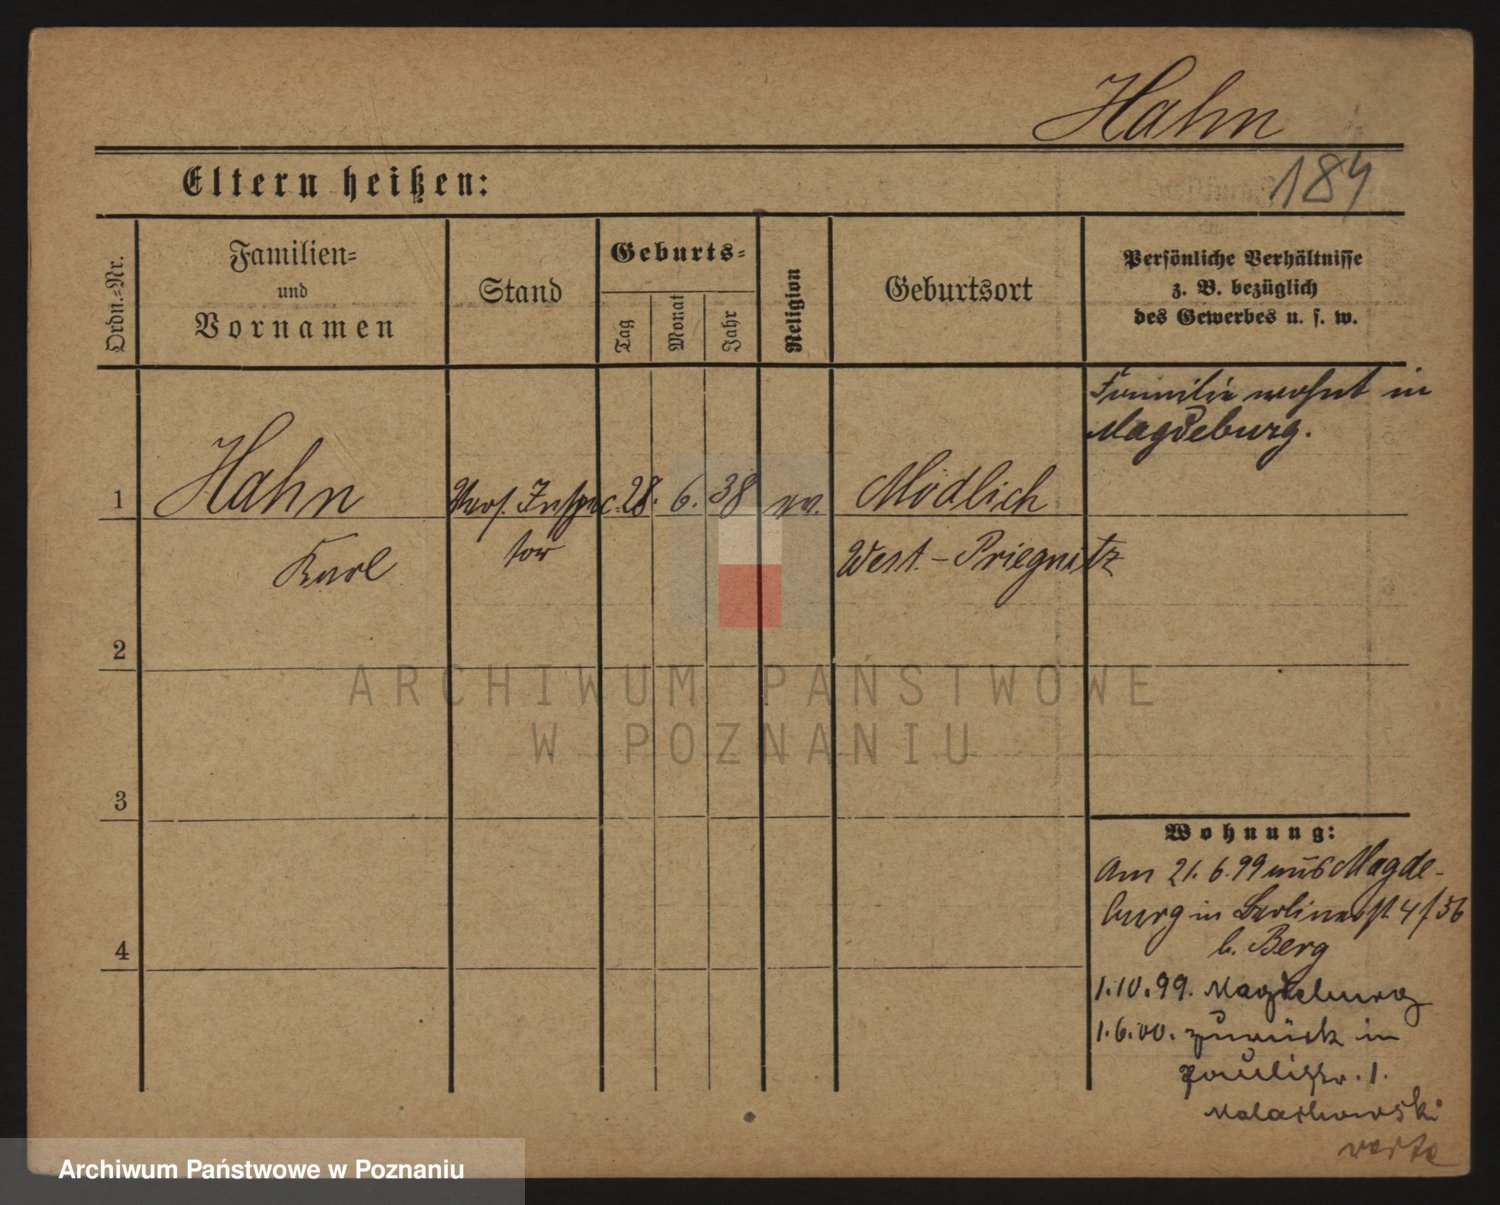 Hahn
184
Eltern heißen:
Ordn.=Nr.
Familien=
und
Vornamen
Stand
Geburts=
Tag
Monat
Jahr
Religion
Geburtsort
Persönliche Verhältnisse
z. B. bezüglich
des Gewerbes u. s. w.
Familie wohnt in
Magdeburg.
1
Hahn
Vers. Inspec-
28.
6.
38
ev.
Mödlich
Karl
tor
West.-Priegnitz
2
ARCHIWUM PAŃSTWOWE
W POZNANIU
3
Wohnung:
Am 21.6.99 aus Magde-
burg in Berlinerst. 4/56
b. Berg
4
1.10.99. Magdeburg
1.6.00. zurück in
Paulistr. 1.
Malachowski
verte
Archiwum Państwowe w Poznaniu